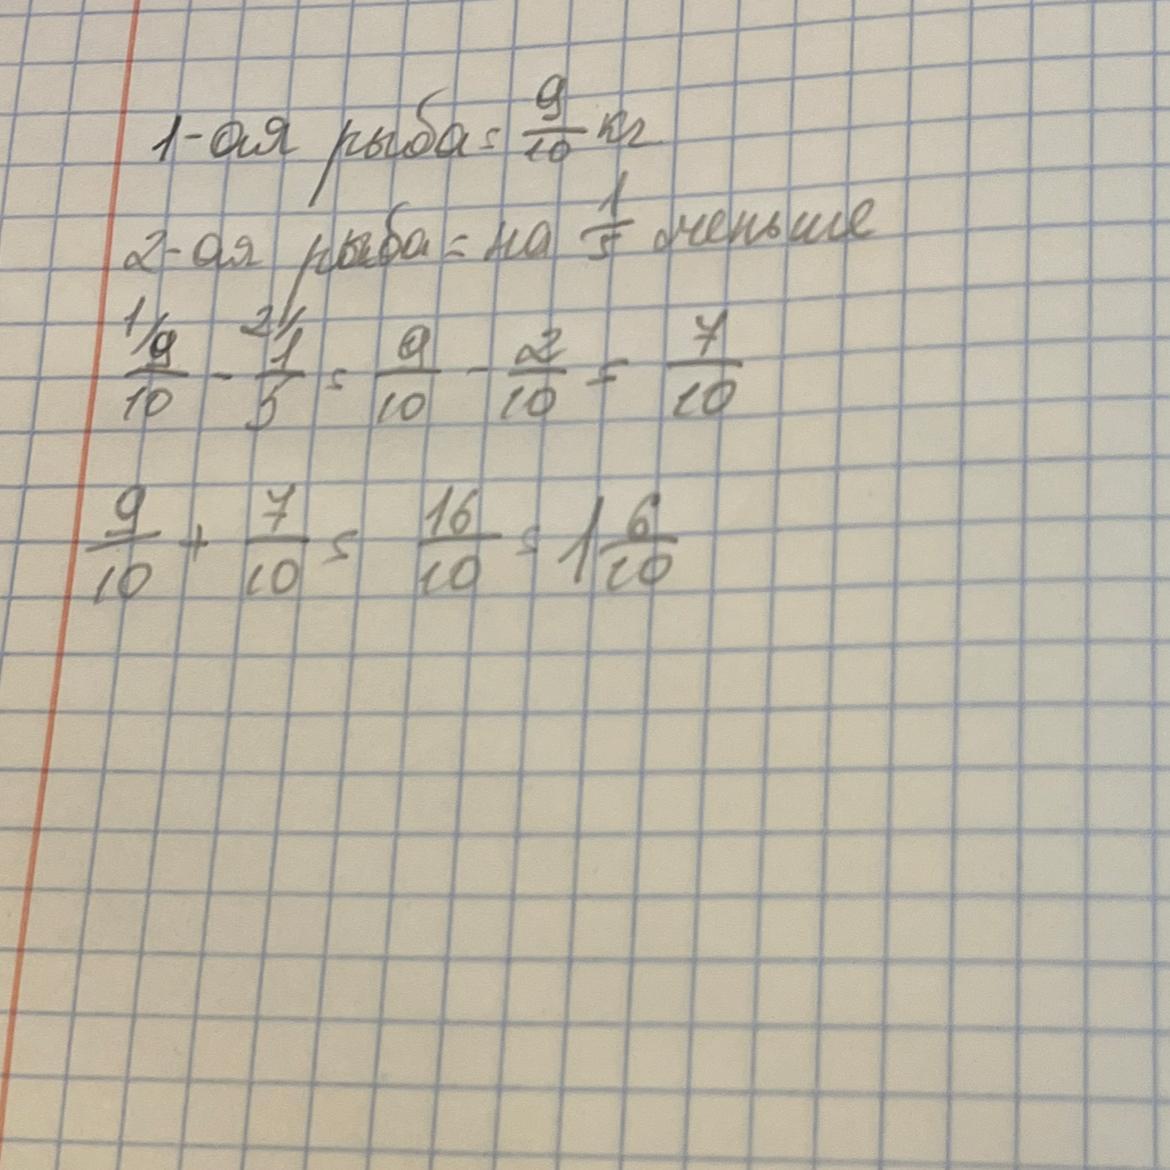 1-ая рыба = 9/10 кг
2-ая рыба = на 1/5 меньше
1/ 9/10 - 2/ 1/5 = 9/10 - 2/10 = 7/10
9/10 + 7/10 = 16/10 = 1 6/10